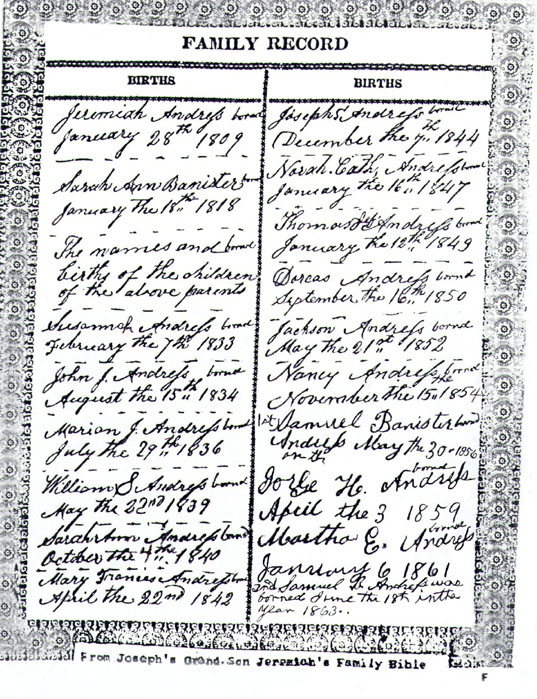 FAMILY RECORD
BIRTHS
Jeremiah Andress borned
January 28th 1809
Sarah Ann Banister borned
January the 18th 1818
The names and borned
births of the children
of the above parents
Susannah Andress borned
February the 7th 1833
John J. Andress, borned
August the 15th 1834
Marion J. Andress borned
July the 29th 1836
William S Andress borned
May the 22nd 1839
Sarah Ann Andress borned
October the 1840
Mary Frances Andress borned
April the 22nd 1842
BIRTHS
Joseph Andress borned
December the 7th 1844
Norah. Cath, Andress borned
January the 16th 1847
Thomas Andress borned
January the 12th 1849
Dorcas Andress borned
September the 16th 1850
Jackson Andress borned
May the 21st 1852
Nancy Andress, borned
November the 15th 1854
1st Samuel Banister borned
Andress May the 30 1856
on the
Jorge H. Andress borned
April the 3 1859
Martha E. Andress borned
January 6 1861
2nd Samuel R. Andress was
borned June the 18th in the
year 1863..
From Joseph's Grand-Son Jeremiah's Family Bible
F